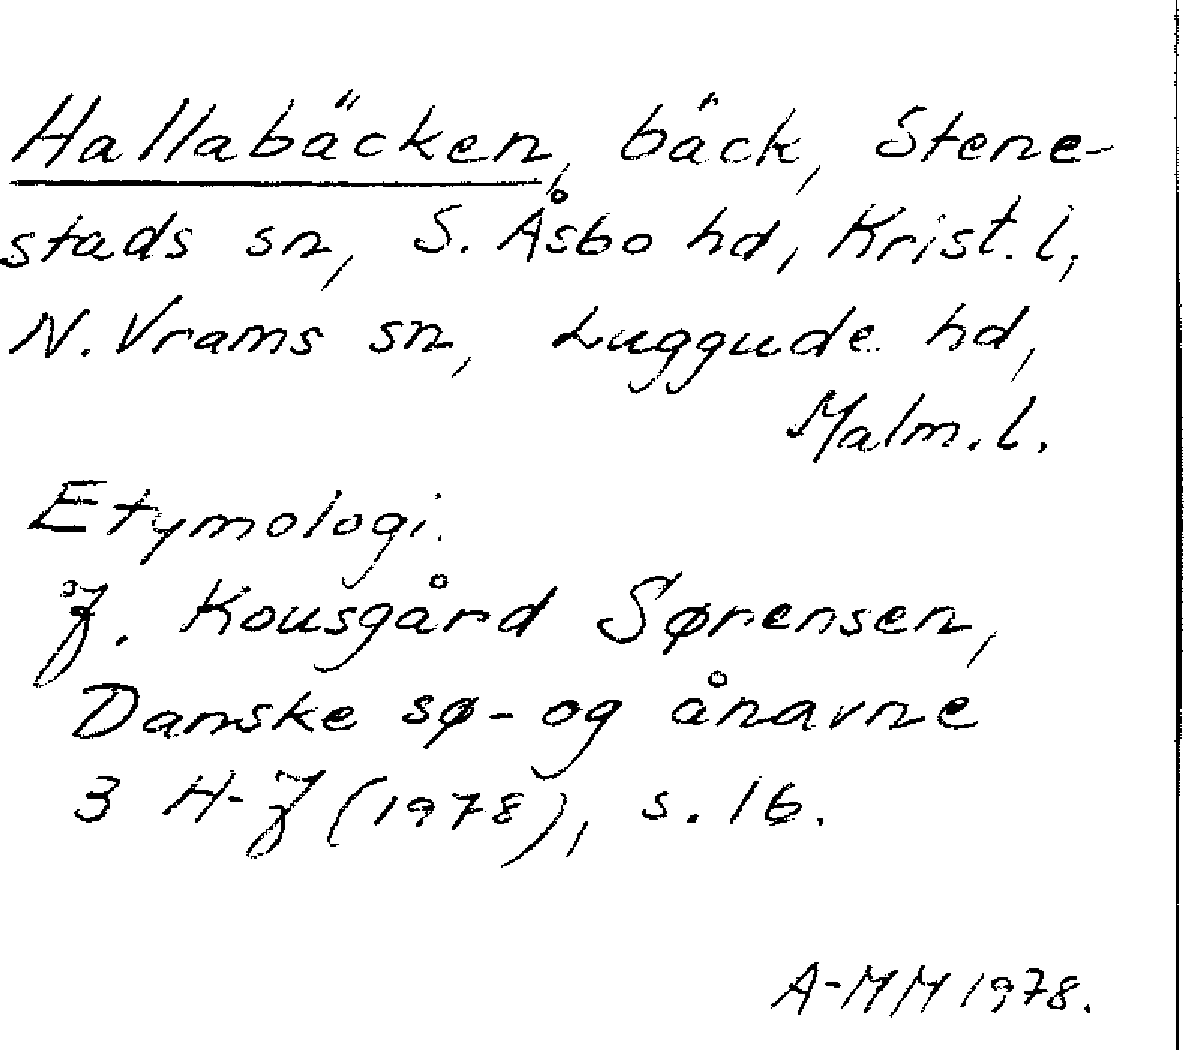 Hallabäcken, bäck, Stene-
stads sn, S. Åsbo hd, Krist. l,
N. Vrams sn, Luggude hd,
Malm. l.
Etymologi.
J. Kousgård Sørensen,
Danske sø- og ånavne
3 H-J (1978), s. 16.
A-MM 1978.